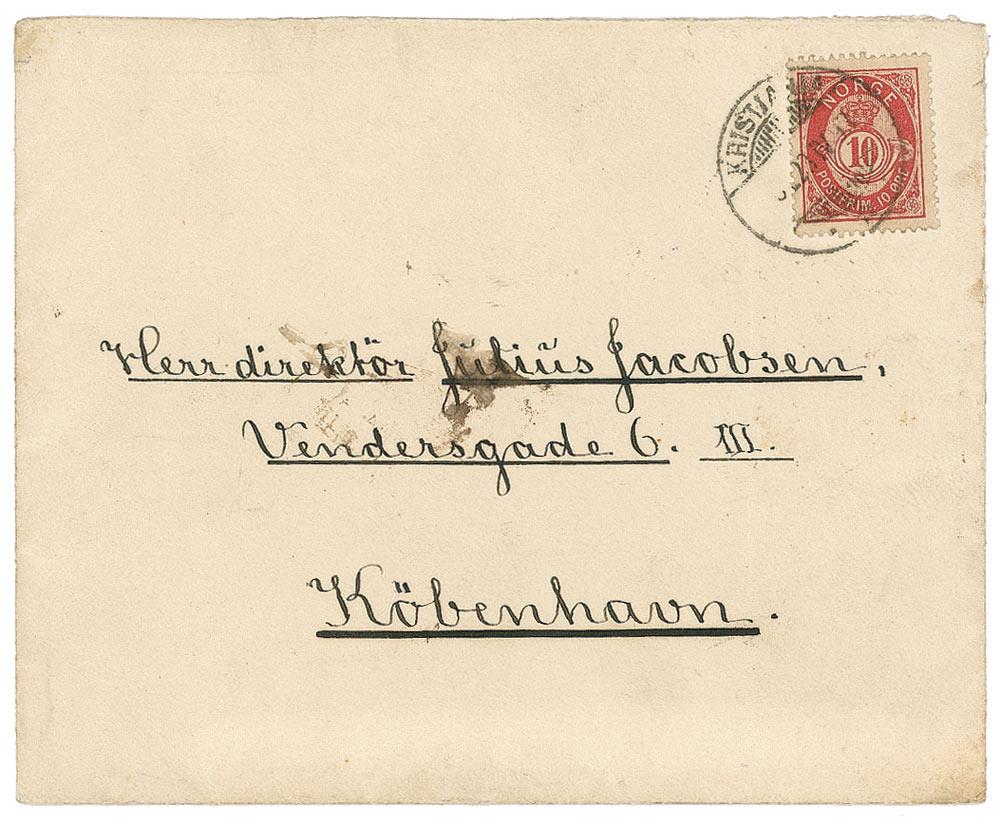 NORGE
10
POSTFRIM. 10 ØRE
Herr direktör Julius Jacobsen,
Vendersgade 6. III.
Köbenhavn.